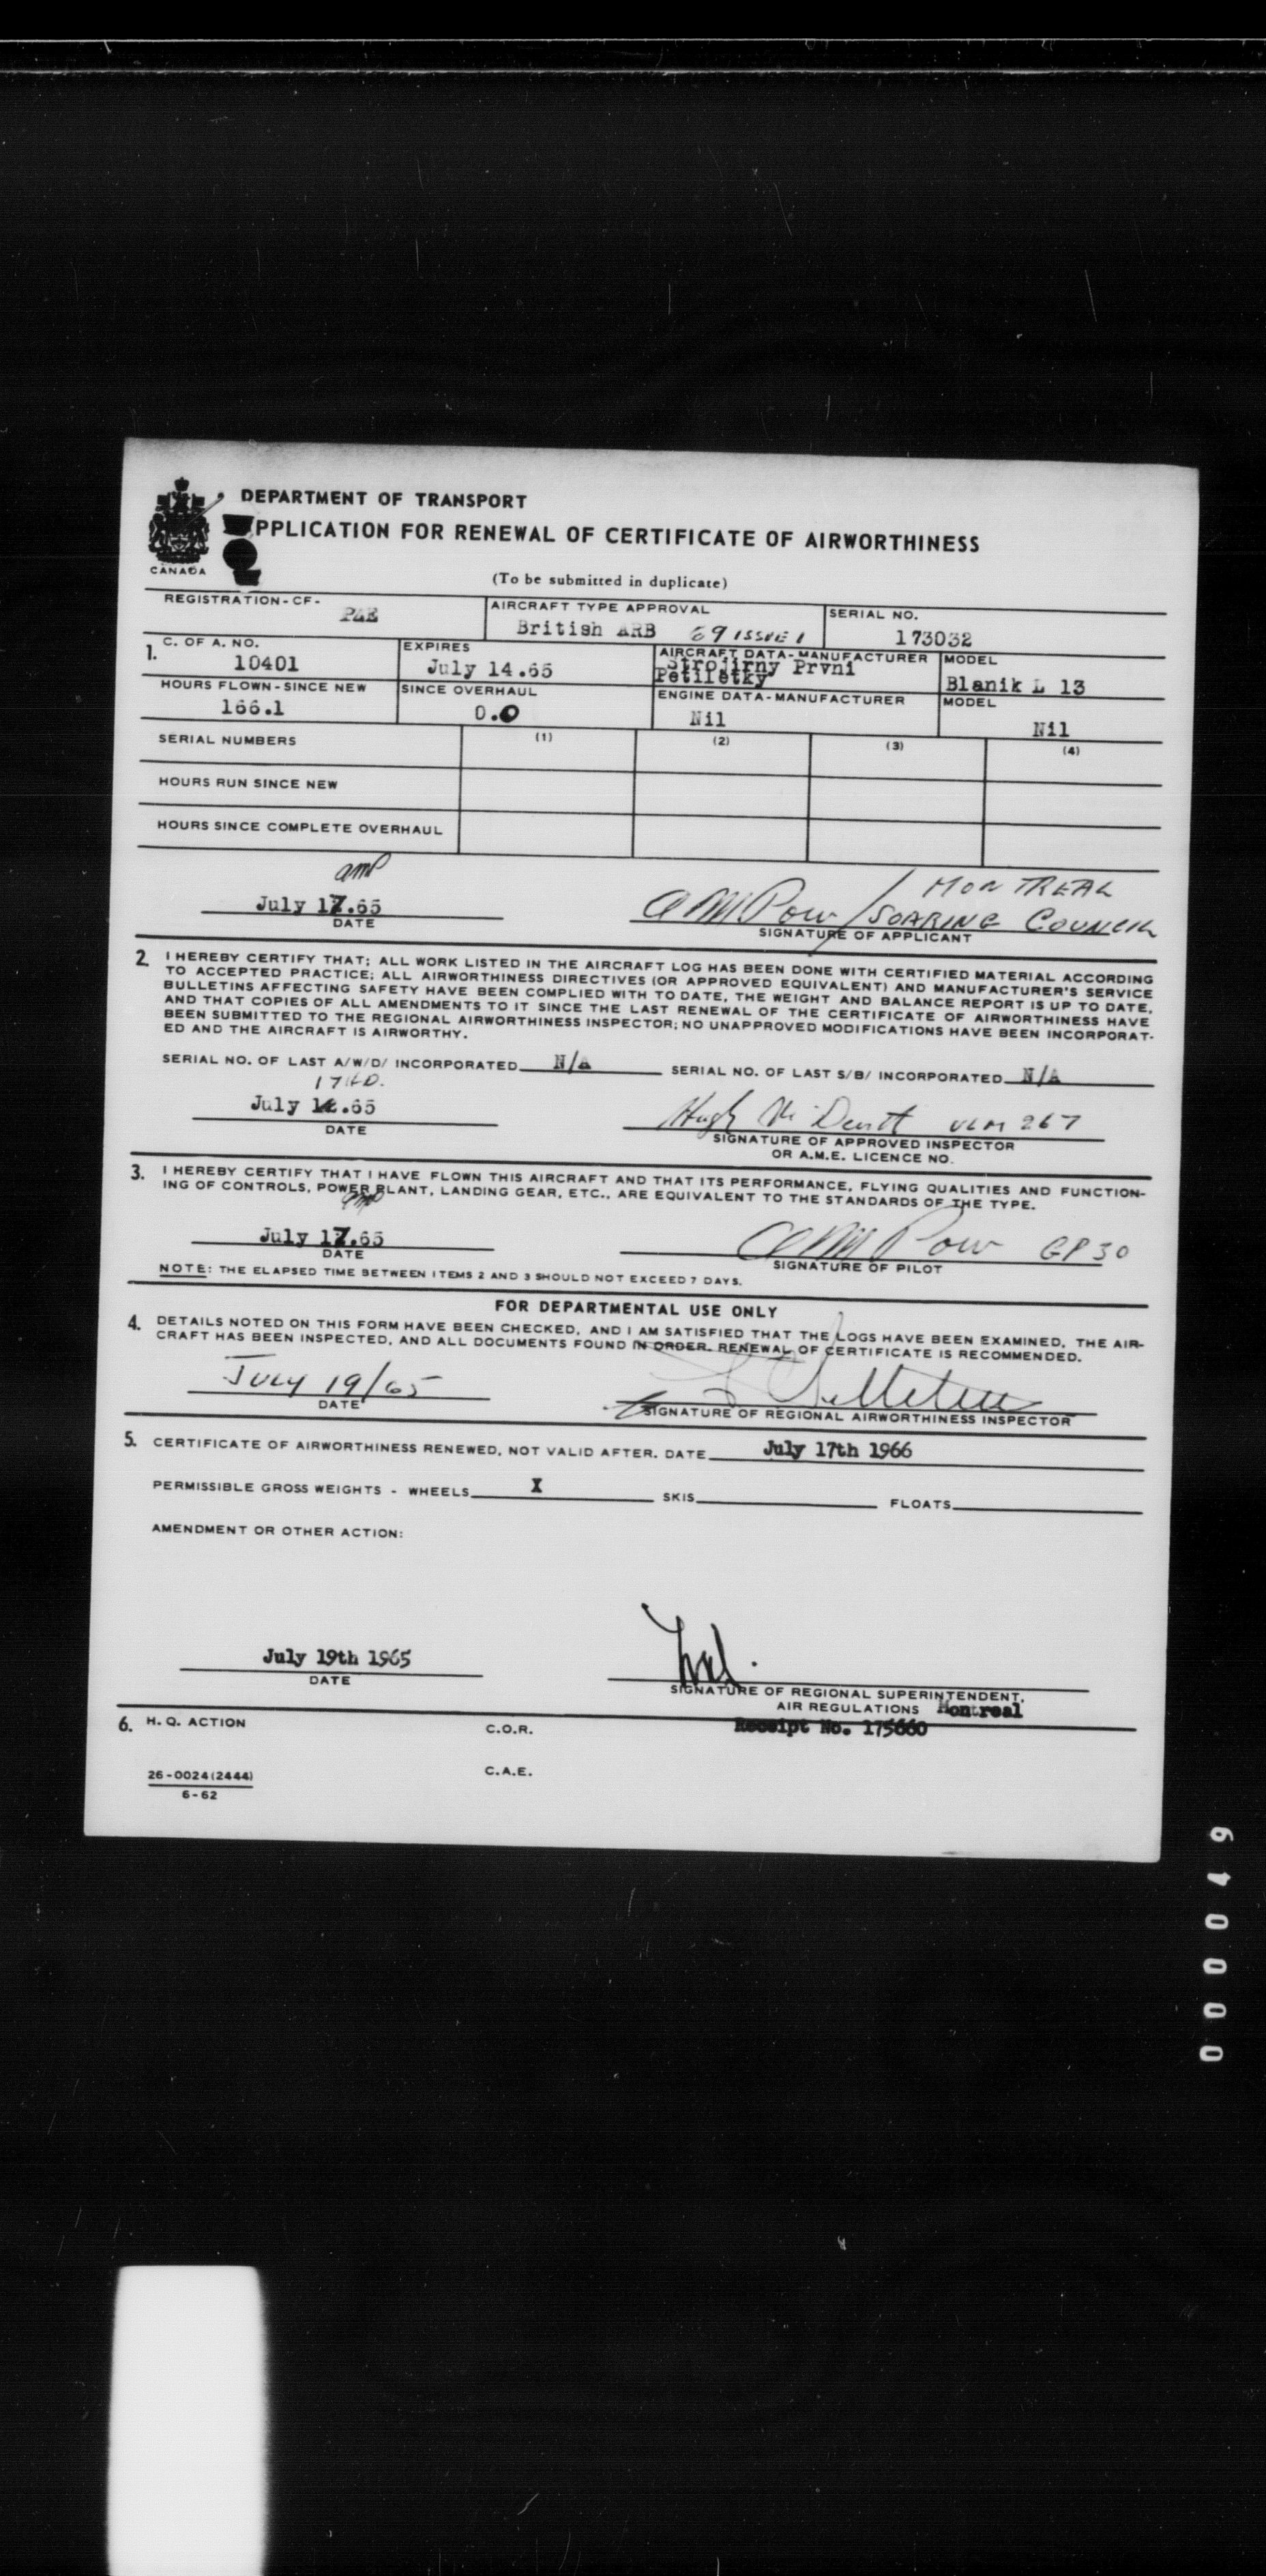 DEPARTMENT OF TRANSPORT
APPLICATION FOR RENEWAL OF CERTIFICATE OF AIRWORTHINESS
CANADA
(To be submitted in duplicate)
REGISTRATION-CF- PAE AIRCRAFT TYPE APPROVAL British ARB 69 ISSUE 1 SERIAL NO. 173032
1. C. OF A. NO. 10401 EXPIRES July 14.65 AIRCRAFT DATA-MANUFACTURER Strojirny Prvni Petiletky MODEL Blanik L 13
HOURS FLOWN-SINCE NEW 166.1 SINCE OVERHAUL 0.0 ENGINE DATA-MANUFACTURER Nil MODEL Nil
SERIAL NUMBERS (1) (2) (3) (4)
HOURS RUN SINCE NEW
HOURS SINCE COMPLETE OVERHAUL
amp
July 17.65 AM Pow / MONTREAL SOARING COUNCIL
DATE SIGNATURE OF APPLICANT
2. I HEREBY CERTIFY THAT; ALL WORK LISTED IN THE AIRCRAFT LOG HAS BEEN DONE WITH CERTIFIED MATERIAL ACCORDING
TO ACCEPTED PRACTICE; ALL AIRWORTHINESS DIRECTIVES (OR APPROVED EQUIVALENT) AND MANUFACTURER'S SERVICE
BULLETINS AFFECTING SAFETY HAVE BEEN COMPLIED WITH TO DATE, THE WEIGHT AND BALANCE REPORT IS UP TO DATE,
AND THAT COPIES OF ALL AMENDMENTS TO IT SINCE THE LAST RENEWAL OF THE CERTIFICATE OF AIRWORTHINESS HAVE
BEEN SUBMITTED TO THE REGIONAL AIRWORTHINESS INSPECTOR; NO UNAPPROVED MODIFICATIONS HAVE BEEN INCORPORAT-
ED AND THE AIRCRAFT IS AIRWORTHY.
SERIAL NO. OF LAST A/W/D/ INCORPORATED N/A SERIAL NO. OF LAST S/B/ INCORPORATED N/A
July .65 Hugh
DATE SIGNATURE OF APPROVED INSPECTOR
OR A.M.E. LICENCE NO.
3. I HEREBY CERTIFY THAT I HAVE FLOWN THIS AIRCRAFT AND THAT ITS PERFORMANCE, FLYING QUALITIES AND FUNCTION-
ING OF CONTROLS, POWER PLANT, LANDING GEAR, ETC., ARE EQUIVALENT TO THE STANDARDS OF THE TYPE.
amp
July 17.65 AM Pow GP 30
DATE SIGNATURE OF PILOT
NOTE: THE ELAPSED TIME BETWEEN ITEMS 2 AND 3 SHOULD NOT EXCEED 7 DAYS.
FOR DEPARTMENTAL USE ONLY
4. DETAILS NOTED ON THIS FORM HAVE BEEN CHECKED, AND I AM SATISFIED THAT THE LOGS HAVE BEEN EXAMINED, THE AIR-
CRAFT HAS BEEN INSPECTED, AND ALL DOCUMENTS FOUND IN ORDER. RENEWAL OF CERTIFICATE IS RECOMMENDED.
JULY 19/65
DATE SIGNATURE OF REGIONAL AIRWORTHINESS INSPECTOR
5. CERTIFICATE OF AIRWORTHINESS RENEWED, NOT VALID AFTER. DATE July 17th 1966
PERMISSIBLE GROSS WEIGHTS - WHEELS X SKIS FLOATS
AMENDMENT OR OTHER ACTION:
July 19th 1965
DATE SIGNATURE OF REGIONAL SUPERINTENDENT,
AIR REGULATIONS Montreal
Receipt No. 175660
6. H. Q. ACTION C.O.R.
C.A.E.
26-0024(2444)
6-62
000049